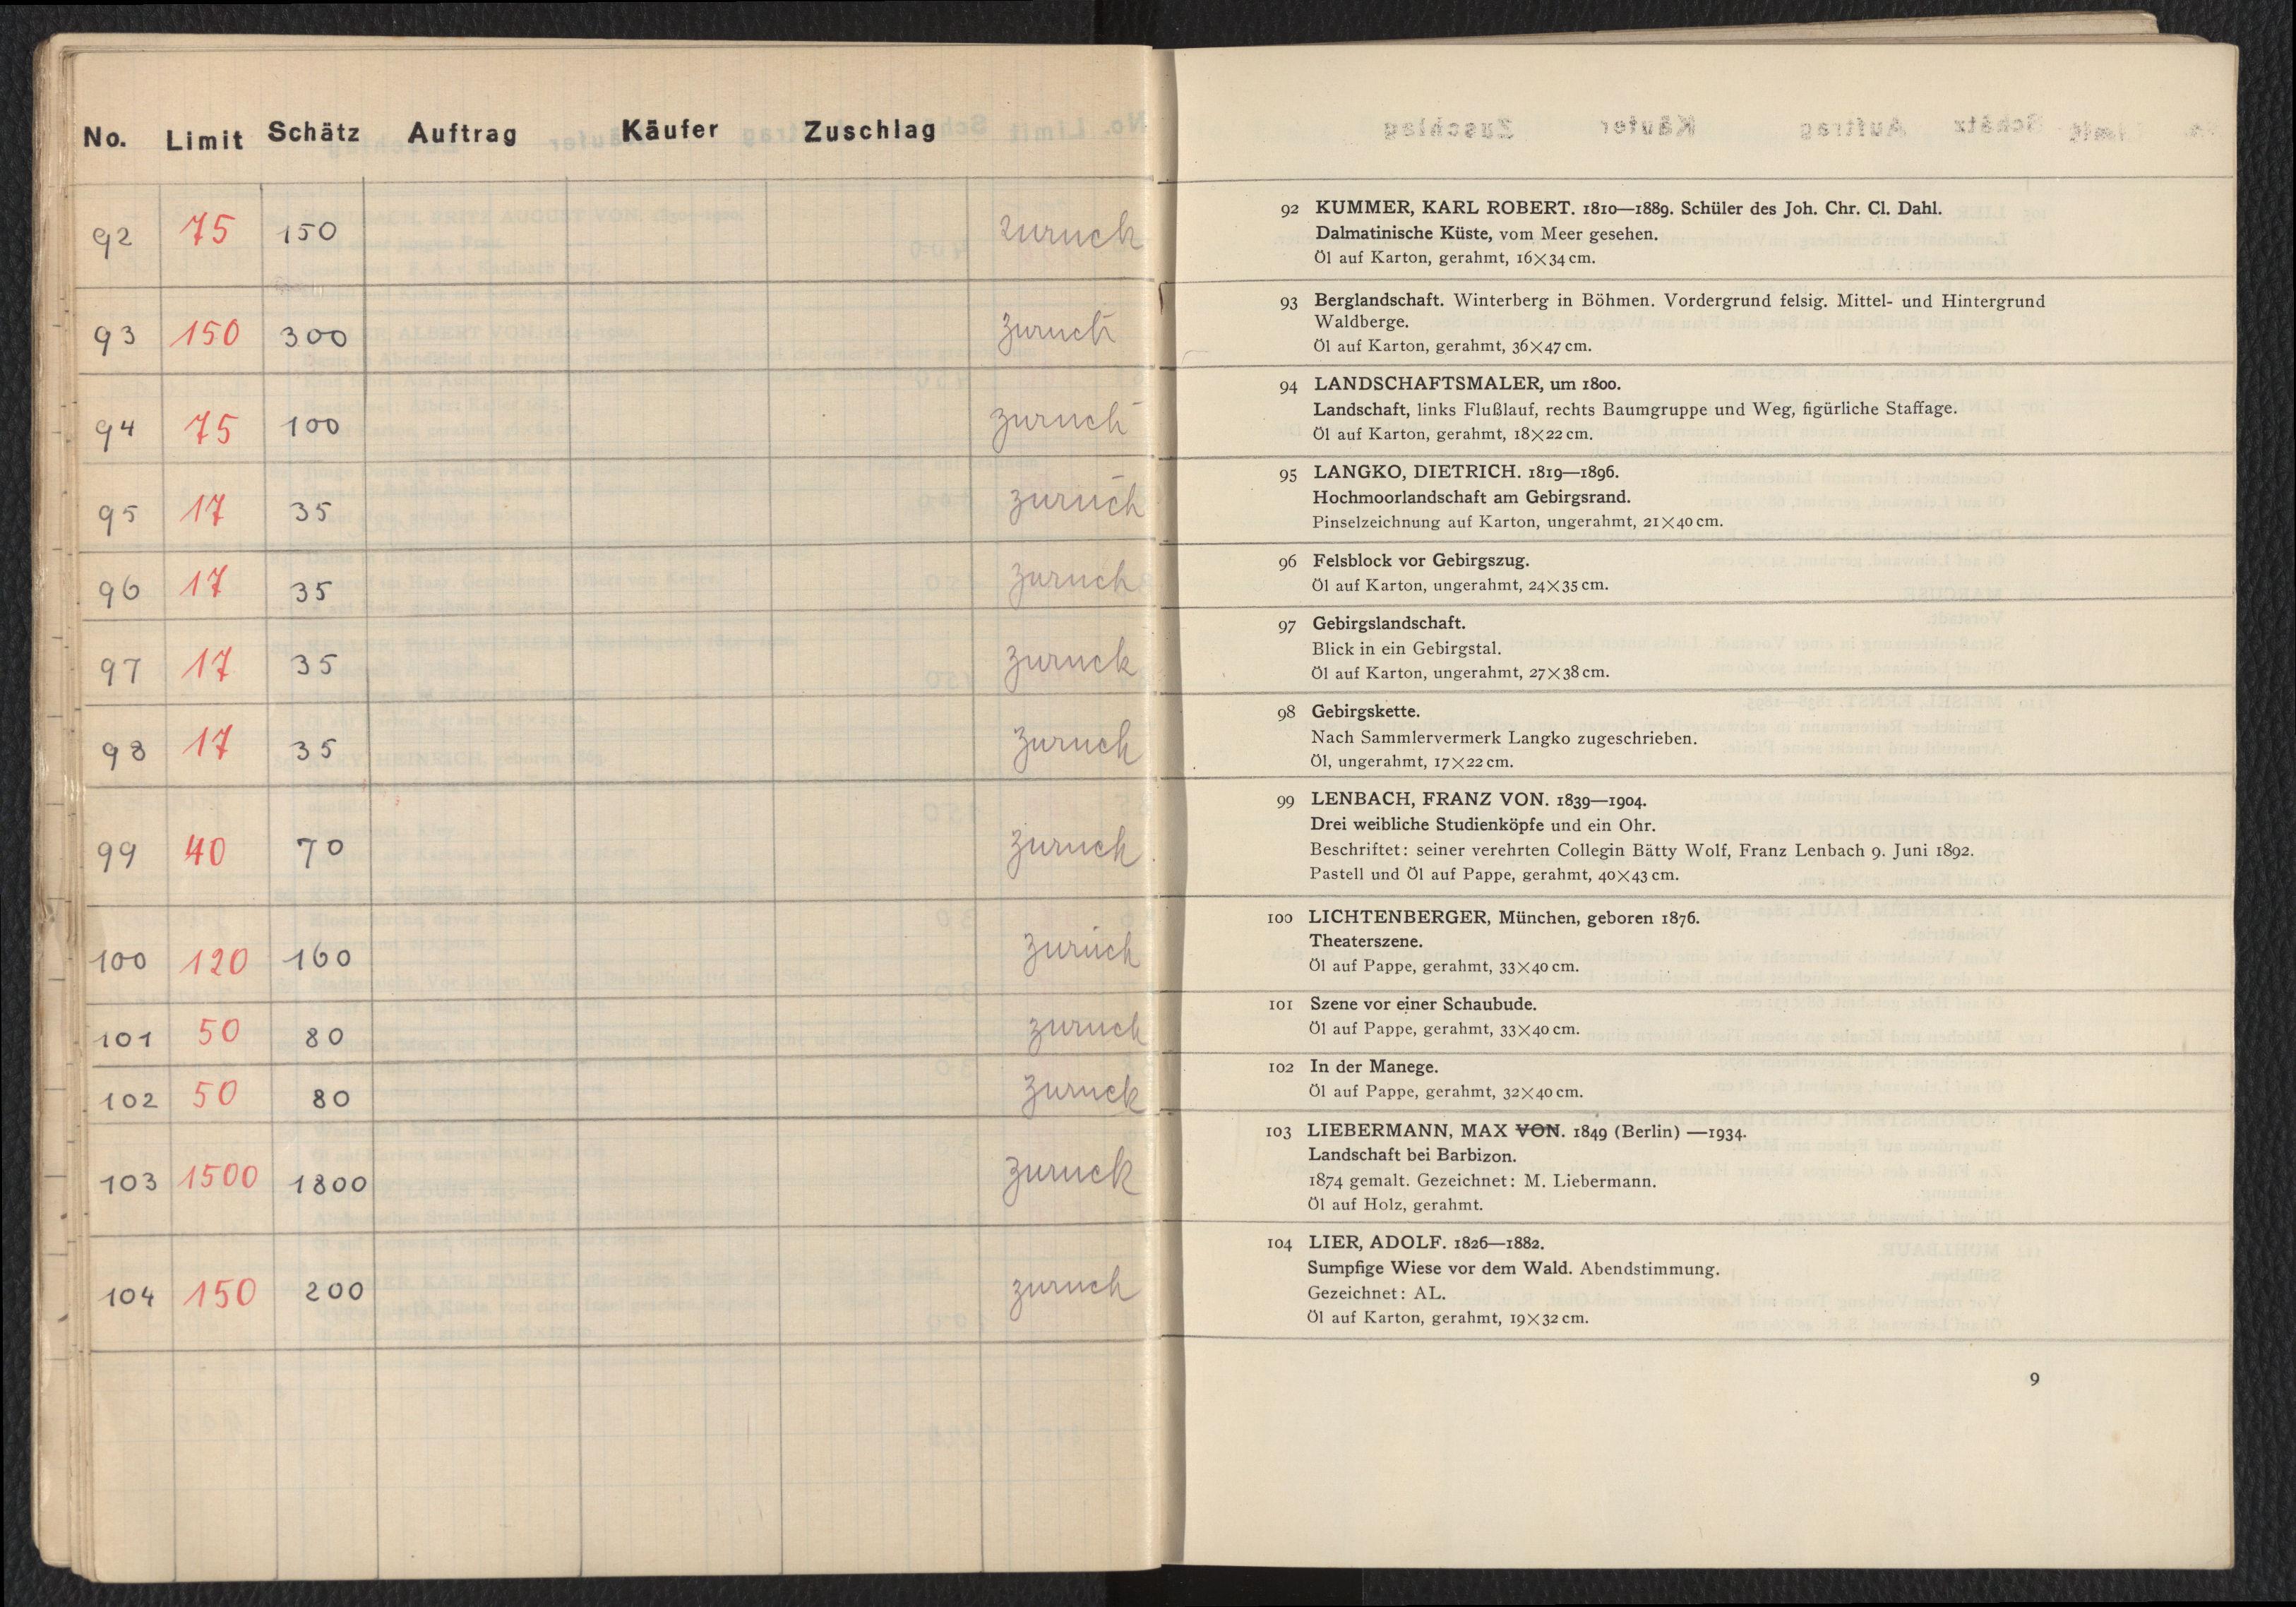 No. Limit Schätz Auftrag Käufer Zuschlag
92 75 150 zuruck
93 150 300 zuruck
94 75 100 zuruck
95 17 35 zuruck
96 17 35 zuruck
97 17 35 zuruck
98 17 35 zuruck
99 40 70 zuruck
100 120 160 zuruck
101 50 80 zuruck
102 50 80 zuruck
103 1500 1800 zuruck
104 150 200 zuruck
92 KUMMER, KARL ROBERT. 1810—1889. Schüler des Joh. Chr. Cl. Dahl.
Dalmatinische Küste, vom Meer gesehen.
Öl auf Karton, gerahmt, 16×34 cm.
93 Berglandschaft. Winterberg in Böhmen. Vordergrund felsig. Mittel- und Hintergrund
Waldberge.
Öl auf Karton, gerahmt, 36×47 cm.
94 LANDSCHAFTSMALER, um 1800.
Landschaft, links Flußlauf, rechts Baumgruppe und Weg, figürliche Staffage.
Öl auf Karton, gerahmt, 18×22 cm.
95 LANGKO, DIETRICH. 1819—1896.
Hochmoorlandschaft am Gebirgsrand.
Pinselzeichnung auf Karton, ungerahmt, 21×40 cm.
96 Felsblock vor Gebirgszug.
Öl auf Karton, ungerahmt, 24×35 cm.
97 Gebirgslandschaft.
Blick in ein Gebirgstal.
Öl auf Karton, ungerahmt, 27×38 cm.
98 Gebirgskette.
Nach Sammlervermerk Langko zugeschrieben.
Öl, ungerahmt, 17×22 cm.
99 LENBACH, FRANZ VON. 1839—1904.
Drei weibliche Studienköpfe und ein Ohr.
Beschriftet: seiner verehrten Collegin Bätty Wolf, Franz Lenbach 9. Juni 1892.
Pastell und Öl auf Pappe, gerahmt, 40×43 cm.
100 LICHTENBERGER, München, geboren 1876.
Theaterszene.
Öl auf Pappe, gerahmt, 33×40 cm.
101 Szene vor einer Schaubude.
Öl auf Pappe, gerahmt, 33×40 cm.
102 In der Manege.
Öl auf Pappe, gerahmt, 32×40 cm.
103 LIEBERMANN, MAX VON. 1849 (Berlin) —1934.
Landschaft bei Barbizon.
1874 gemalt. Gezeichnet: M. Liebermann.
Öl auf Holz, gerahmt.
104 LIER, ADOLF. 1826—1882.
Sumpfige Wiese vor dem Wald. Abendstimmung.
Gezeichnet: AL.
Öl auf Karton, gerahmt, 19×32 cm.
9